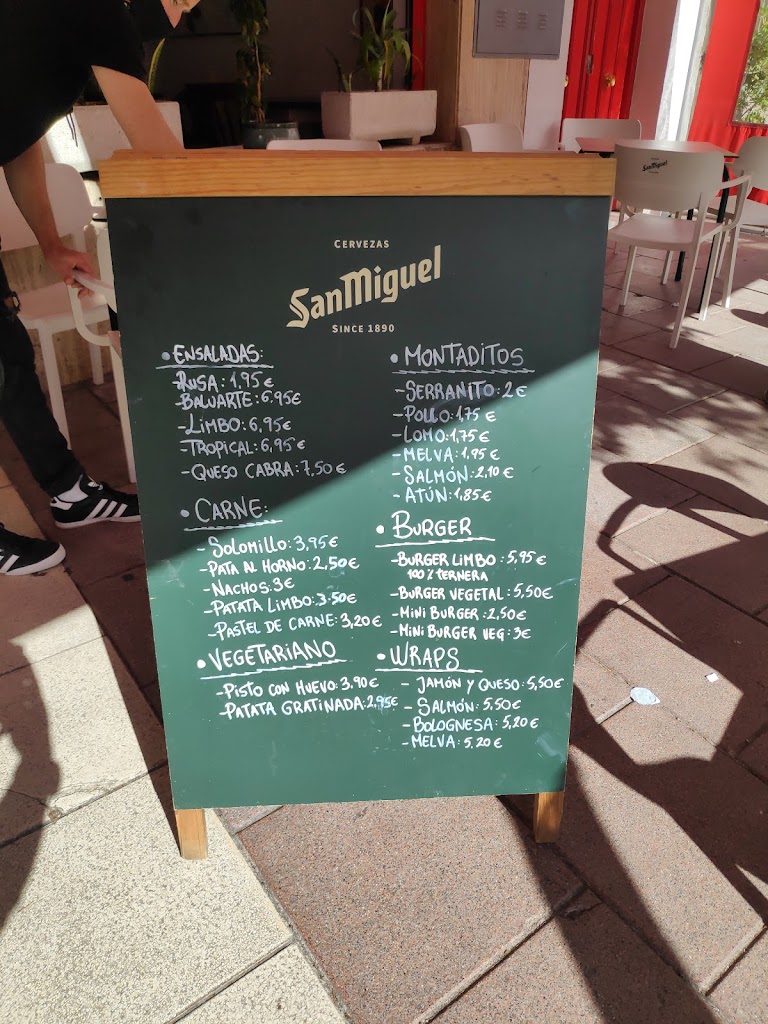 CERVEZAS
SanMiguel
SINCE 1890
• ENSALADAS:
- RUSA: 1,95 €
- BALUARTE: 6,95€
- LIMBO: 6,95€
- TROPICAL: 6,95 €
- QUESO CABRA: 7,50 €
• CARNE:
- SOLOMILLO: 3,95€
- PATA AL HORNO: 2,50€
- NACHOS: 3€
- PATATA LIMBO: 3.50€
- PASTEL DE CARNE: 3,20€
• VEGETARIANO
- PISTO CON HUEVO: 3,90€
- PATATA GRATINADA: 2,95€
• MONTADITOS
- SERRANITO: 2€
- POLLO: 1,75 €
- LOMO: 1,75 €
- MELVA: 1,95€
- SALMÓN: 2,10 €
- ATÚN: 1,85€
• BURGER
- BURGER LIMBO: 5,95€
100% TERNERA
- BURGER VEGETAL: 5,50€
- MINI BURGER: 2,50€
- MINI BURGER VEG: 3€
• WRAPS
- JAMÓN Y QUESO: 5,50€
- SALMÓN: 5.50€
- BOLOGNESA: 5,20 €
- MELVA: 5.20€
SanMiguel